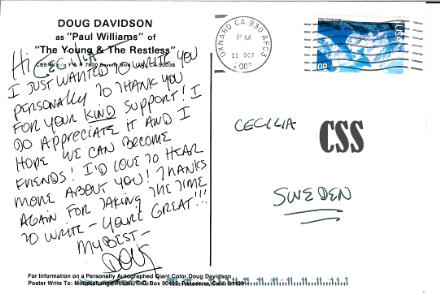 DOUG DAVIDSON
as "Paul Williams" of
"The Young & The Restless"
Hi CECILIA
I JUST WANTED TO WRITE YOU
PERSONALLY TO THANK YOU
FOR YOUR KIND SUPPORT! I
DO APPRECIATE IT AND I
HOPE WE CAN BECOME
FRIENDS! I'D LOVE TO HEAR
MORE ABOUT YOU! THANKS
AGAIN FOR TAKING THE TIME
TO WRITE – YOU'RE GREAT!!!
MY BEST –
DOUG
For Information on a Personally Autographed Giant Color Doug Davidson
Poster Write To:
OXNARD CA 930
P M
11 OCT
USA
CECILIA
CSS
SWEDEN